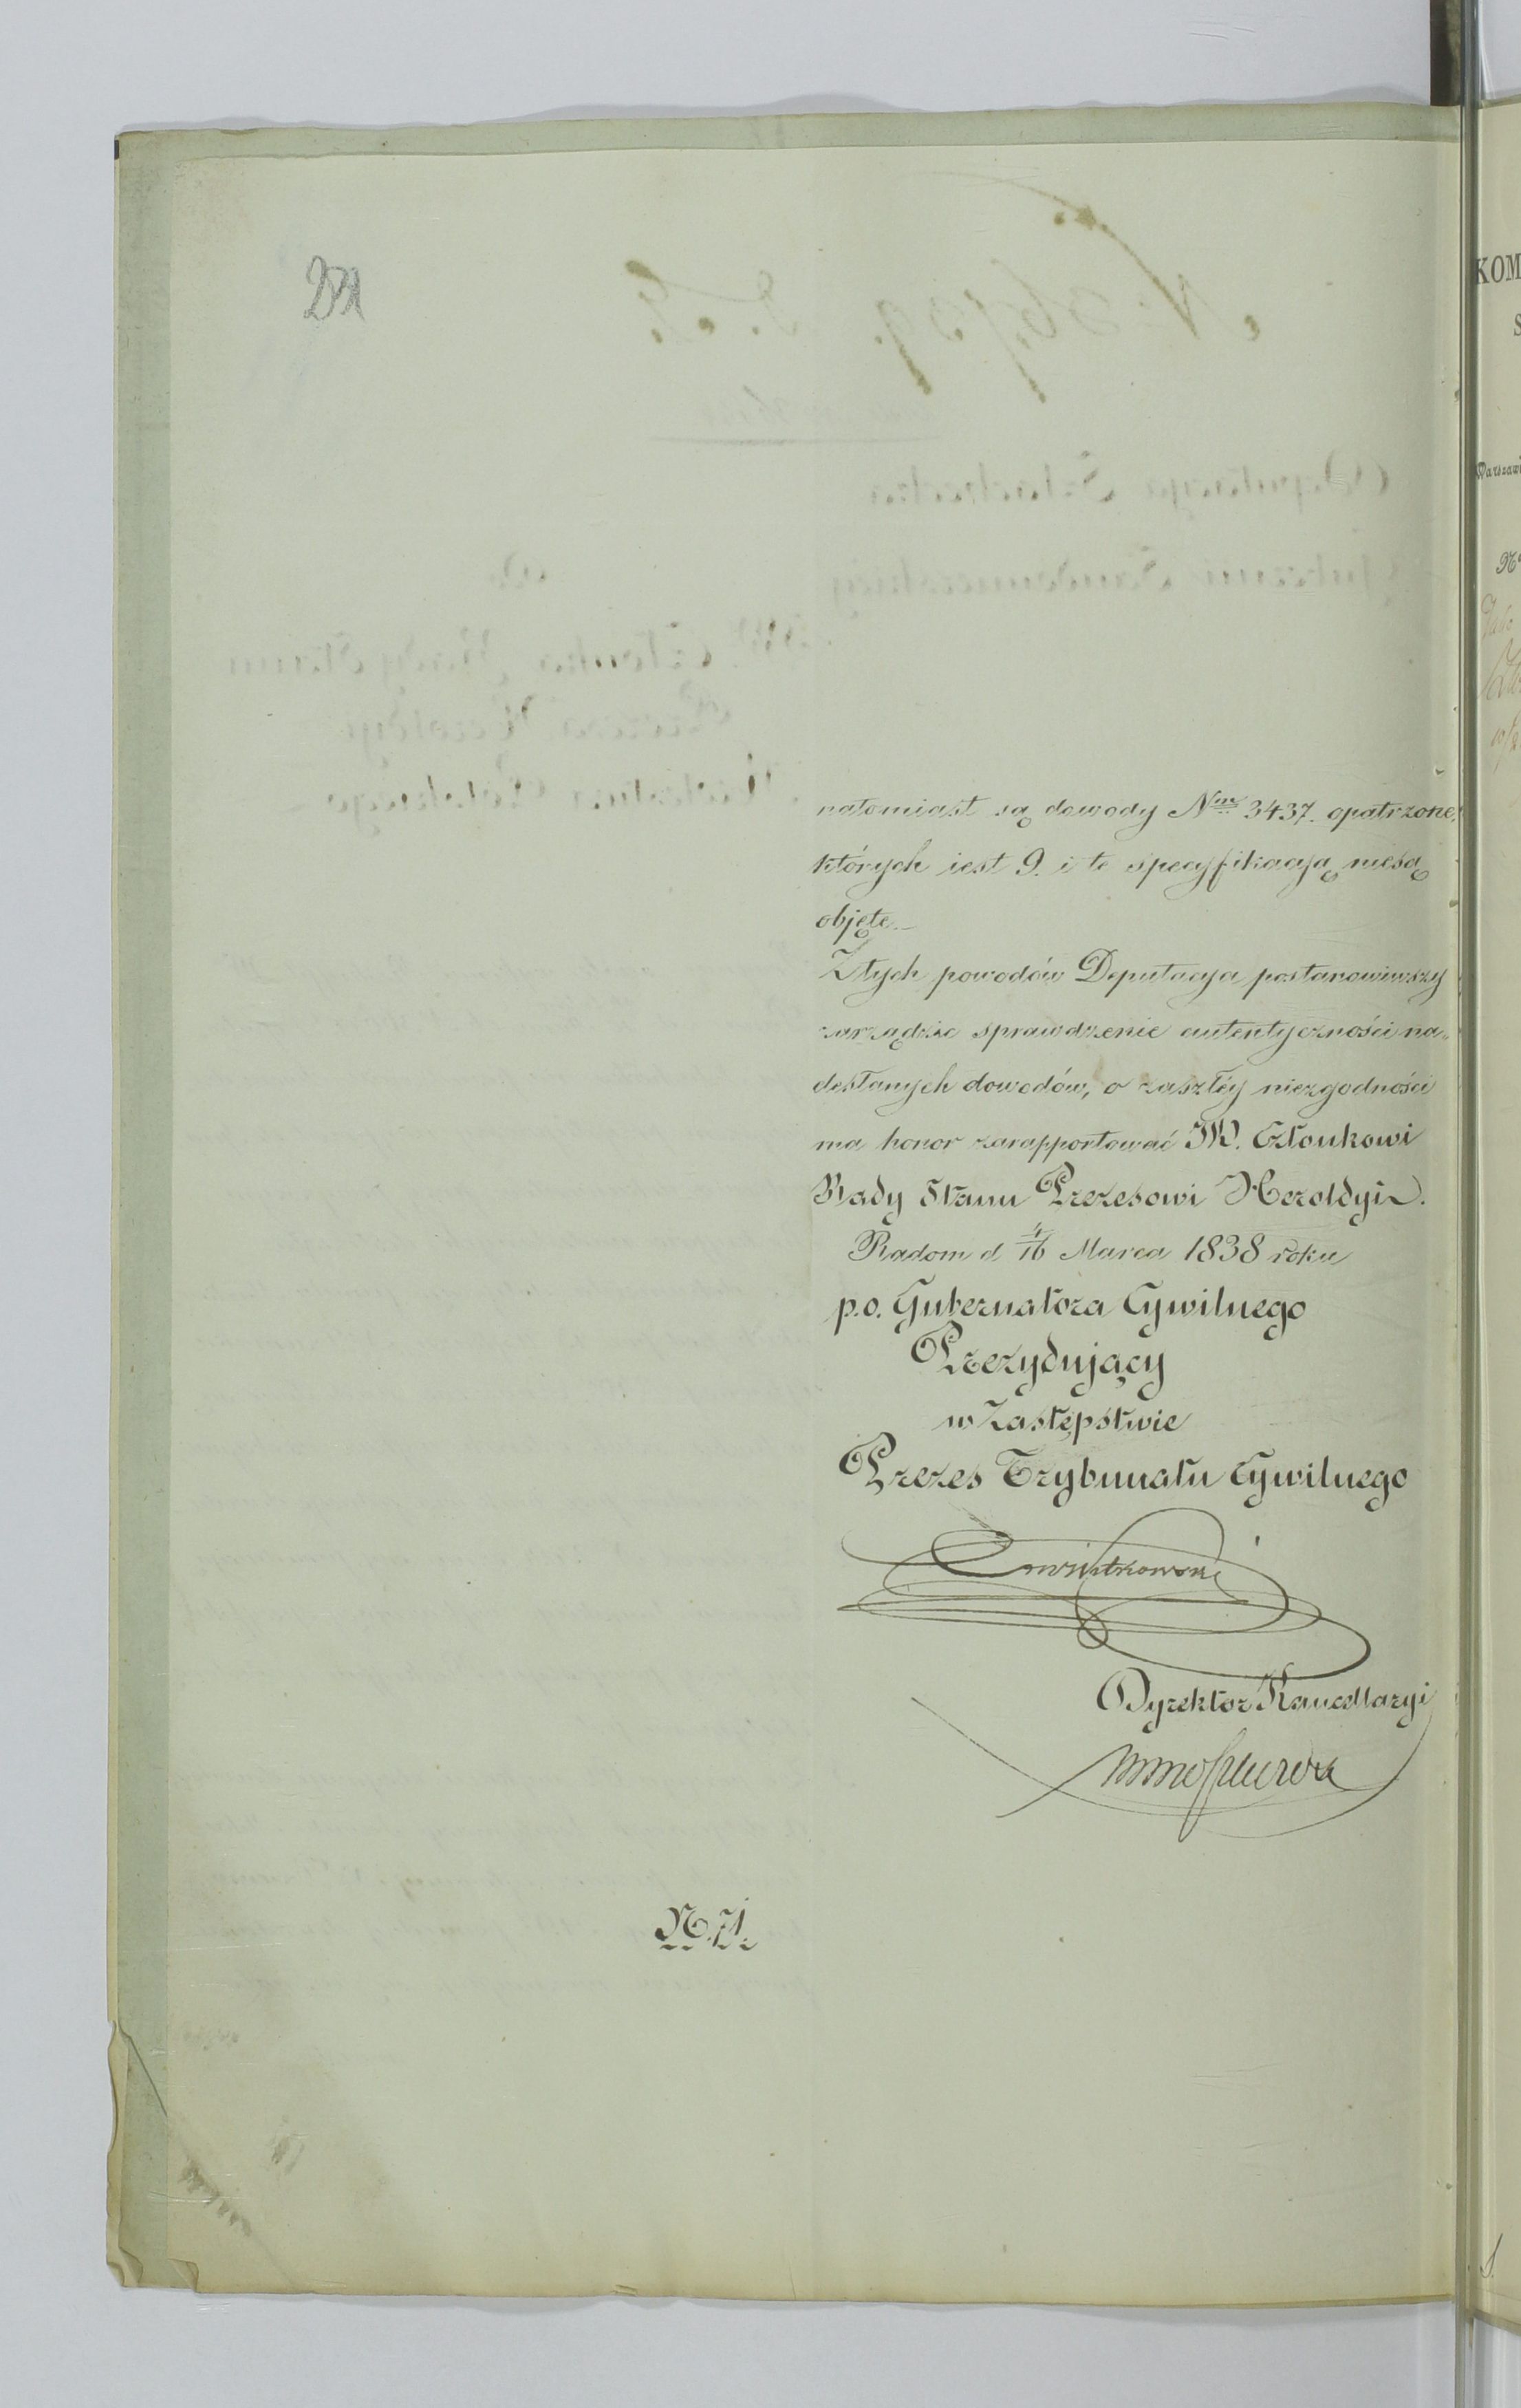 natomiast są dowody N<sup>m</sup> 3437. opatrzone,
których iest 9. i te specyfikacyą niesą
objęte.—
Ztych powodów Deputacya postanowiwszy
zarządzić sprawdzenie autentyczności na„
desłanych dowodów, o zaszłéy niezgodności
ma honor zarapportować JW. Członkowi
Rady Stanu Prezesowi Heroldyi.
Radom d 4/16 Marca 1838 roku
p.o. Gubernatora Cywilnego
Prezydujący
w Zastępstwie
Prezes Trybunału Cywilnego
Dyrektor Kancellaryi
N. 71.
KOM